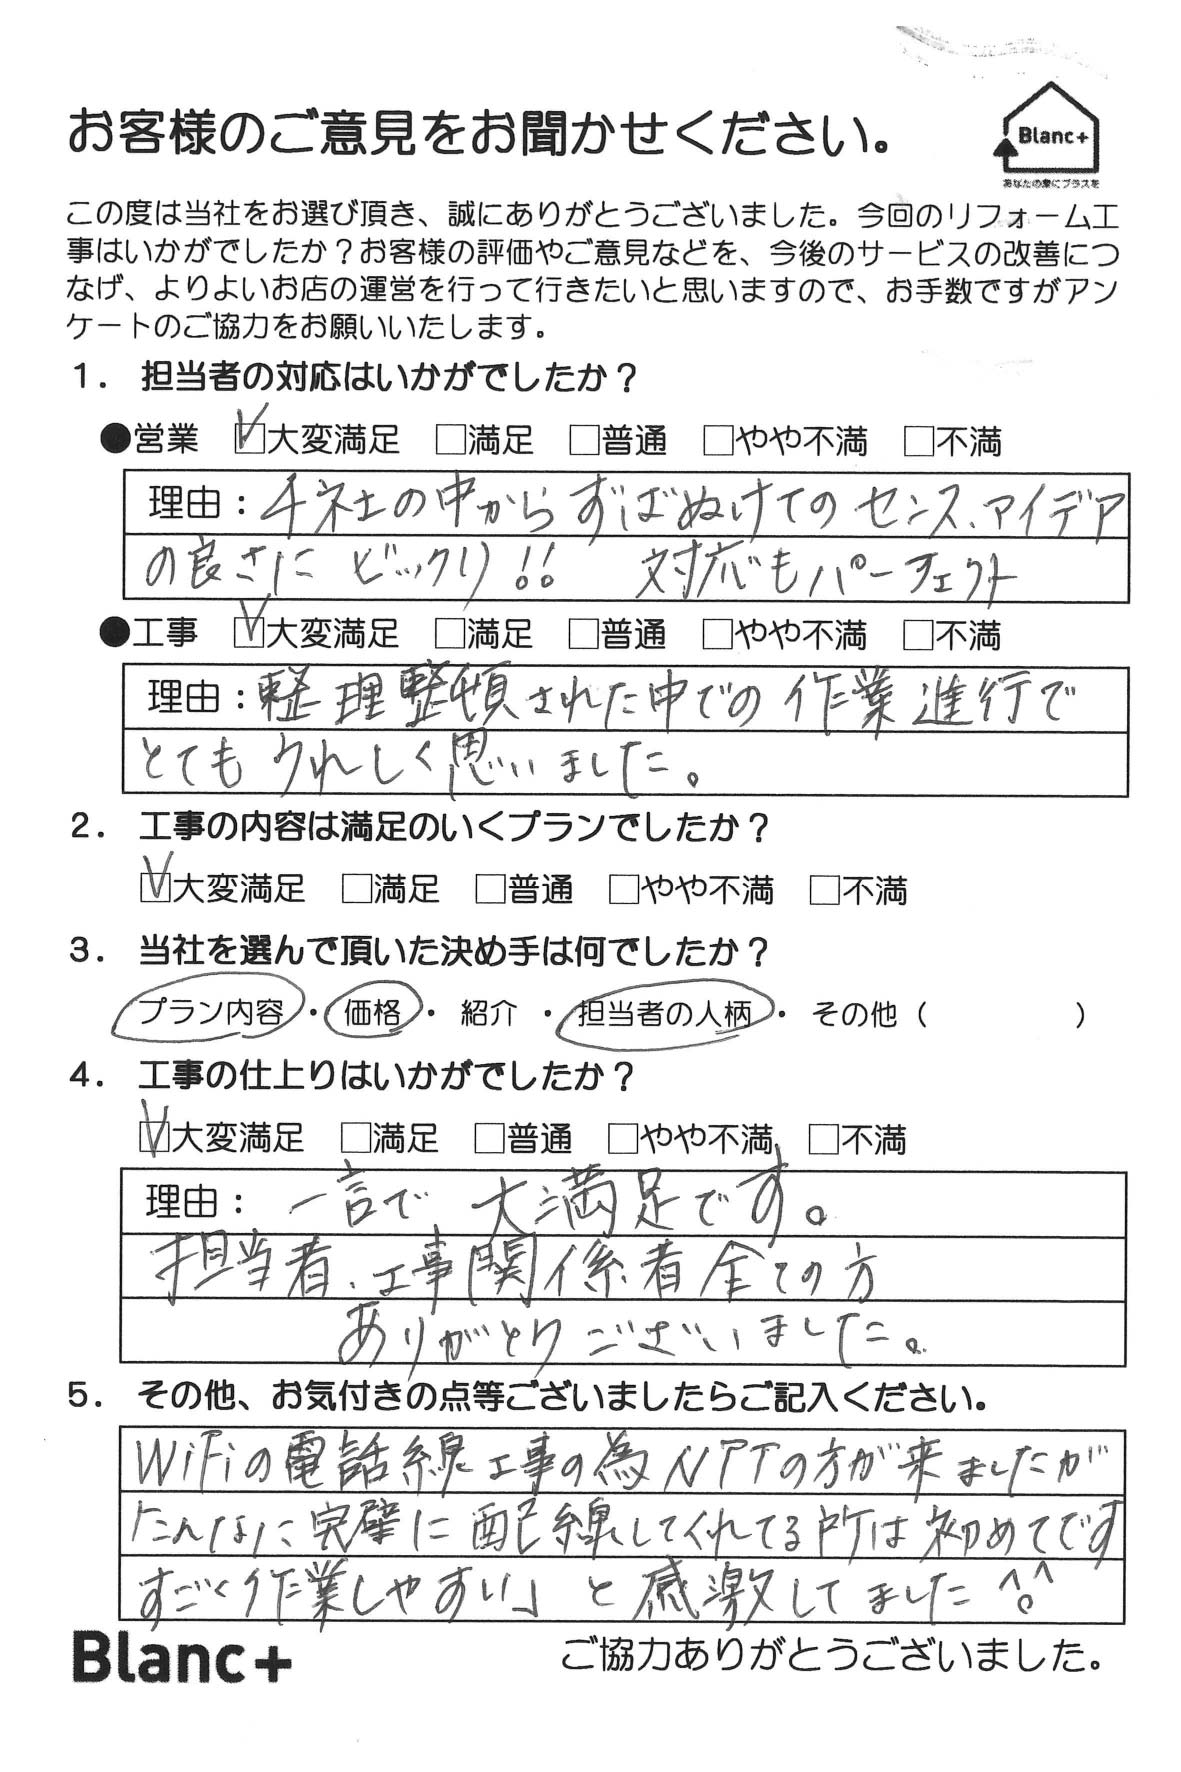 お客様のご意見をお聞かせください。
Blanc+
あなたの家にプラスを
この度は当社をお選び頂き、誠にありがとうございました。今回のリフォーム工
事はいかがでしたか？お客様の評価やご意見などを、今後のサービスの改善につ
なげ、よりよいお店の運営を行って行きたいと思いますので、お手数ですがアン
ケートのご協力をお願いいたします。
１． 担当者の対応はいかがでしたか？
●営業 ☑大変満足 □満足 □普通 □やや不満 □不満
理由：4社の中から ずばぬけてのセンス、アイデア
の良さに ビックリ!! 対応もパーフェクト
●工事 ☑大変満足 □満足 □普通 □やや不満 □不満
理由：整理整頓された中での作業進行で
とてもうれしく思いました。
２． 工事の内容は満足のいくプランでしたか？
☑大変満足 □満足 □普通 □やや不満 □不満
３． 当社を選んで頂いた決め手は何でしたか？
プラン内容・価格・紹介・担当者の人柄・その他（ ）
４． 工事の仕上りはいかがでしたか？
☑大変満足 □満足 □普通 □やや不満 □不満
理由： 一言で 大満足です。
担当者、工事関係者全ての方
ありがとうございました。
５． その他、お気付きの点等ございましたらご記入ください。
WiFiの電話線工事の為NTTの方が来ましたが
「こんなに完璧に配線してくれてる所は初めてです
すごく作業しやすい」と感激してました^o^
Blanc+ ご協力ありがとうございました。